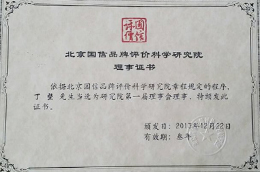 国信评价
北京国信品牌评价科学研究院
理事证书
依据北京国信品牌评价科学研究院章程规定的程序,
丁 先生当选为研究院第一届理事会理事、特颁发此
证书。
颁发日:2013年12月22日
有效期:叁年